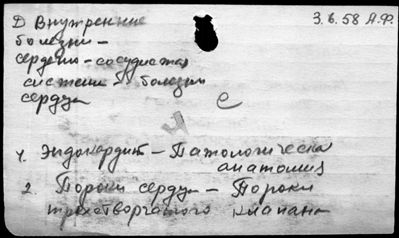 Д Внутренние
болезни –
сердечно-сосудистая
система – болезни
сердца
3.6.58 А.Ф.
е
ч
1. Эндокардит – Патологическая
анатомия
2. Пороки сердца – Пороки
трехстворчатого клапана